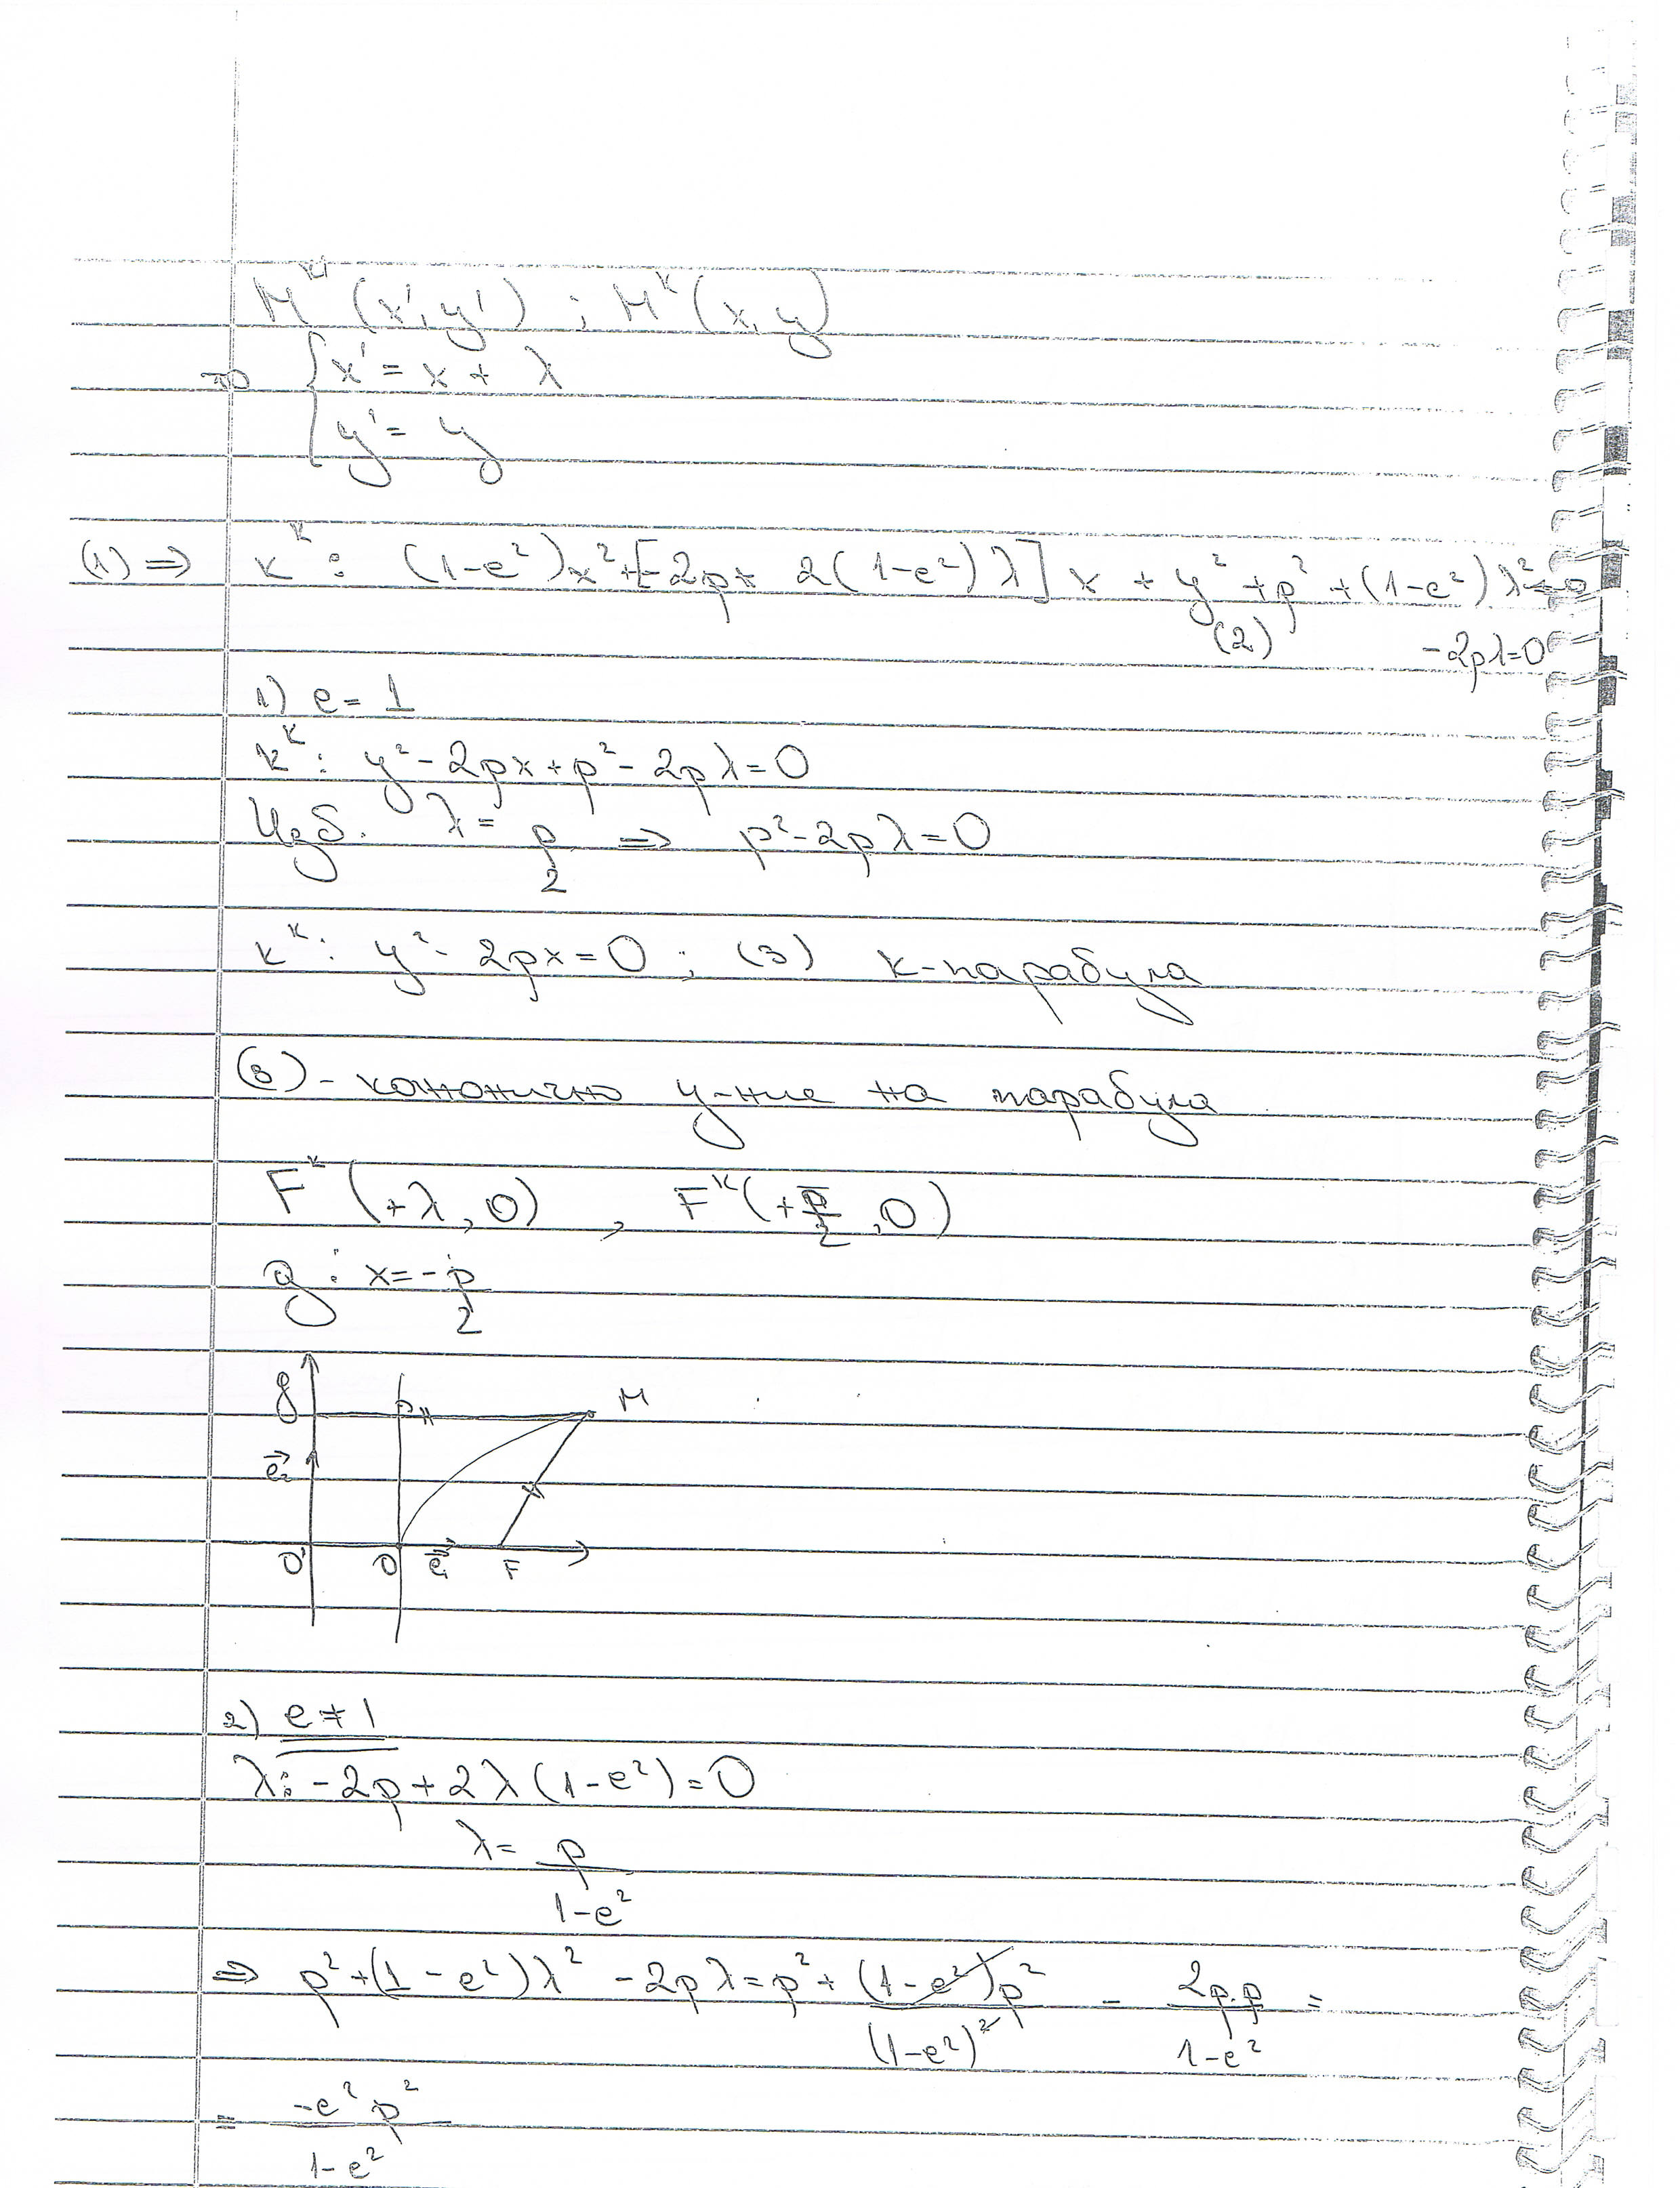 M^K' (x', y') ; M^K (x, y)
=> { x' = x + λ
{ y' = y
(1) => к^K : (1-e²)x² + [-2p + 2(1-e²)λ] x + y² + p² + (1-e²)λ²
(2) -2pλ=0
1) e = 1
к^K : y² - 2px + p² - 2pλ = 0
Изб. λ = p/2 => p² - 2pλ = 0
к^K : y² - 2px = 0 ; (3) к-парабула
(3) - канонично у-ние на парабула
F^K (+λ, 0) , F^K (+p/2, 0)
g : x = -p/2
g M
e₂
O' O e₁ F
2) e ≠ 1
λ : -2p + 2λ(1-e²) = 0
λ = p/(1-e²)
=> p² + (1-e²)λ² - 2pλ = p² + (1-e²)p²/(1-e²)² - 2p.p/(1-e²) =
= -e²p²/(1-e²)